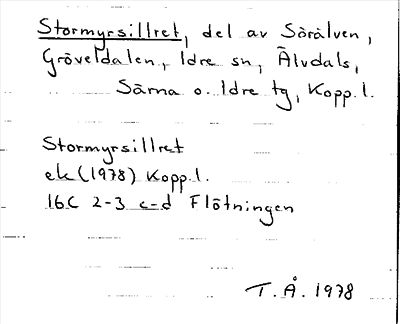 Stormyrsillret, del av Sörälven,
Gröveldalen, Idre sn, Älvdals,
Särna o. Idre tg, Kopp.l.
Stormyrsillret
ek (1978) Kopp.l.
16C 2-3 c-d Flötningen
T.Å. 1978